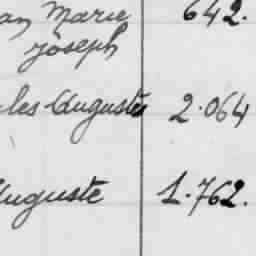 an Marie 642.
Joseph
les Auguste 2.064
Auguste 1.762.